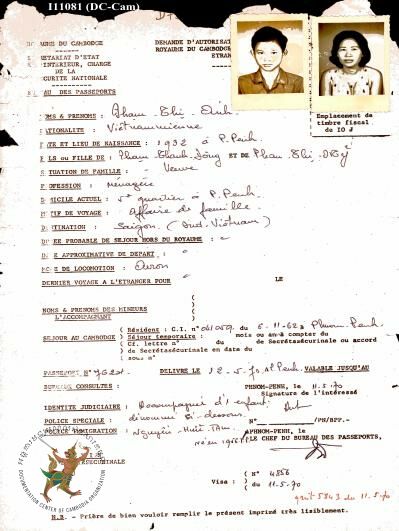 I11081 (DC-Cam)
ROYAUME DU CAMBODGE
DEMANDE D'AUTORISA
ROYAUME DU CAMBODGE
ETRAN
SECRETARIAT D'ETAT
INTERIEUR, CHARGE
DE LA
SECURITE NATIONALE
BUREAU DES PASSEPORTS
Emplacement de
timbre fiscal
de 10 J
NOMS & PRENOMS : Pham-Thi-Anh
NATIONALITE : Vietnamienne
DATE ET LIEU DE NAISSANCE : 1932 à P. Penh.
FILS ou FILLE DE : Pham Thanh ET DE Phan Thi
SITUATION DE FAMILLE : Veuve
PROFESSION : ménagère
DOMICILE ACTUEL : 5e quartier à P. Penh.
MOTIF DE VOYAGE : Affaire de famille.
DESTINATION : Saigon (Sud-Vietnam)
DUREE PROBABLE DE SEJOUR HORS DU ROYAUME :
DATE APPROXIMATIVE DE DEPART :
MODE DE LOCOMOTION : Avion
DERNIER VOYAGE A L'ETRANGER POUR LE
NOMS & PRENOMS DES MINEURS
L'ACCOMPAGNANT
( Résident : C.I. n° du 6-11-62 à Phnom-Penh
SEJOUR AU CAMBODGE ( Séjour temporaire : mois ou an à compter du
( Cf. lettre n° du de Secrétasécurinale ou accord
( de Secrétasécurinale en date du
( sous n°
PASSEPORT N° DELIVRE LE 12-5-70 à P. Penh VALABLE JUSQU'AU
BUREAUX CONSULTES : PHNOM-PENH, le 11.5.70
Signature de l'intéressé
IDENTITE JUDICIAIRE : Accompagnée d'enfant
Anh
POLICE SPECIALE : dénommé ci-dessous. N° /PN/BPP.-
POLICE IMMIGRATION : Nguyên-Huê-Tâm PHNOM-PENH, le
Né en 1956 à P.P.
LE CHEF DU BUREAU DES PASSEPORTS,
( N° 4856
Visa : ( du 11.5.70
DOCUMENTATION CENTER OF CAMBODIA ORGANIZATION
5843 du 11.5.70
N.B. - Prière de bien vouloir remplir le présent imprimé très lisiblement.